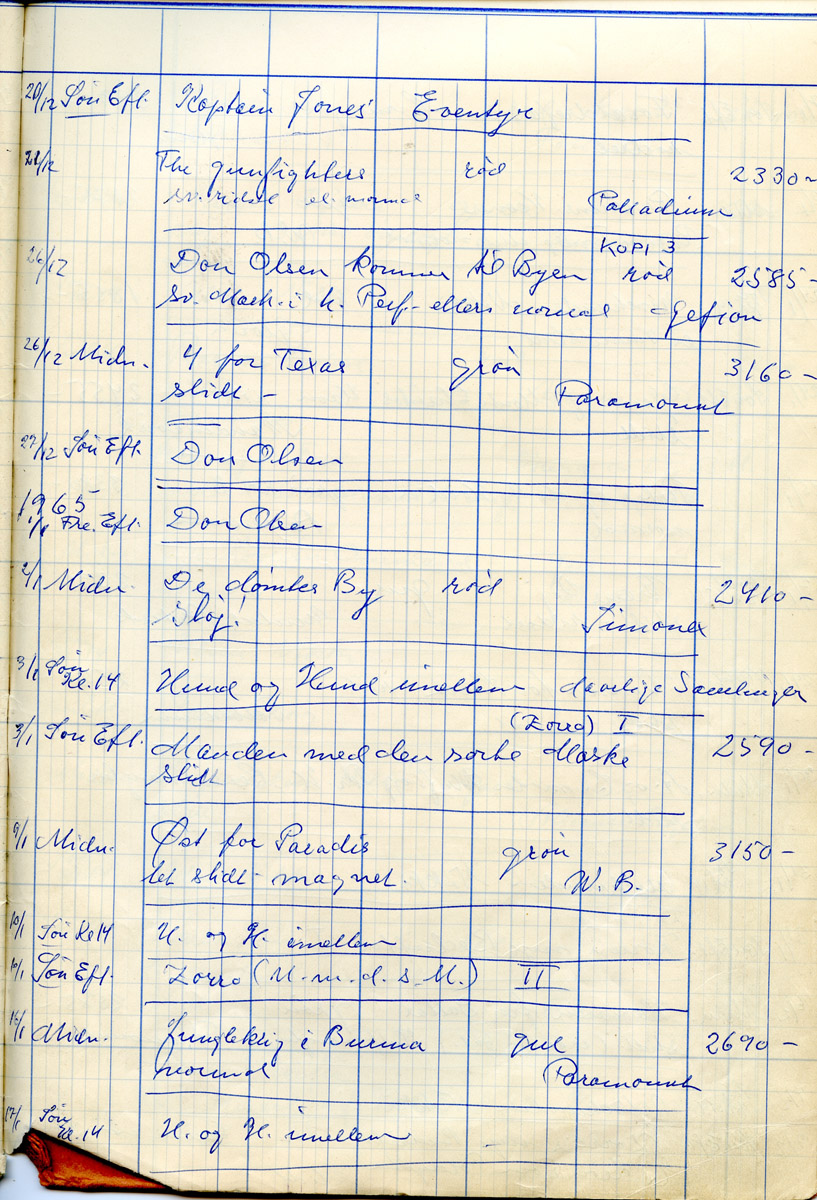 20/12 Søn Eft. Kaptain Jones' Eventyr
21/12 The gunfighters rød 2330-
sv. ridset el. normal Palladium
KOPI 3
26/12 Don Olsen kommer til Byen rød 2585-
sv. Mask. i h. Perf. ellers normal Gefion
26/12 Midn. 4 for Texas grøn 3160-
slidt - Paramount
27/12 Søn Eft. Don Olsen
1965
1/1 Fre. Eft. Don Olsen
2/1 Midn. De dømtes By rød 2410-
Sløj! Simonex
3/1 Søn
Kl. 14 Hund og Hund imellem daarlige Samlinger
(Zorro) I
3/1 Søn Eft. Manden med den sorte Maske 2590-
slidt
9/1 Midn. Øst for Paradis grøn 3150-
let slidt - magnet. W. B.
10/1 Søn Kl 14 H. og H. imellem
10/1 Søn Eft. Zorro (M. m. d. s. M.) II
16/1 Midn. Junglekrig i Burma gul 2690-
normal Paramount
17/1 Søn
Kl. 14 H. og H. imellem